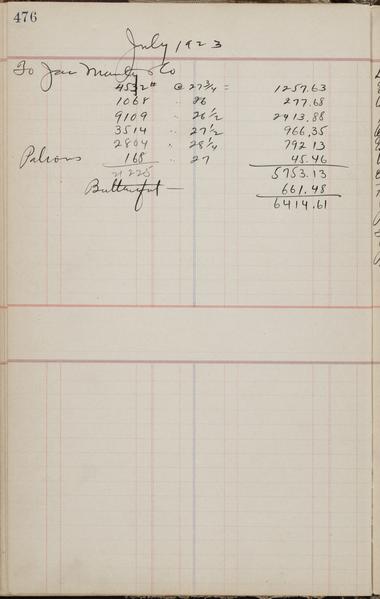 476
July 1923
To Jas Manly & Co
4532# @ 27 3/4 = 1257.63
1068 " 26 277.68
9109 " 26 1/2 2413.88
3514 " 27 1/2 966.35
2804 " 28 1/4 792 13
Patrons 168 " 27 45.46
21225 5753.13
Butterfat — 661.48
6414.61